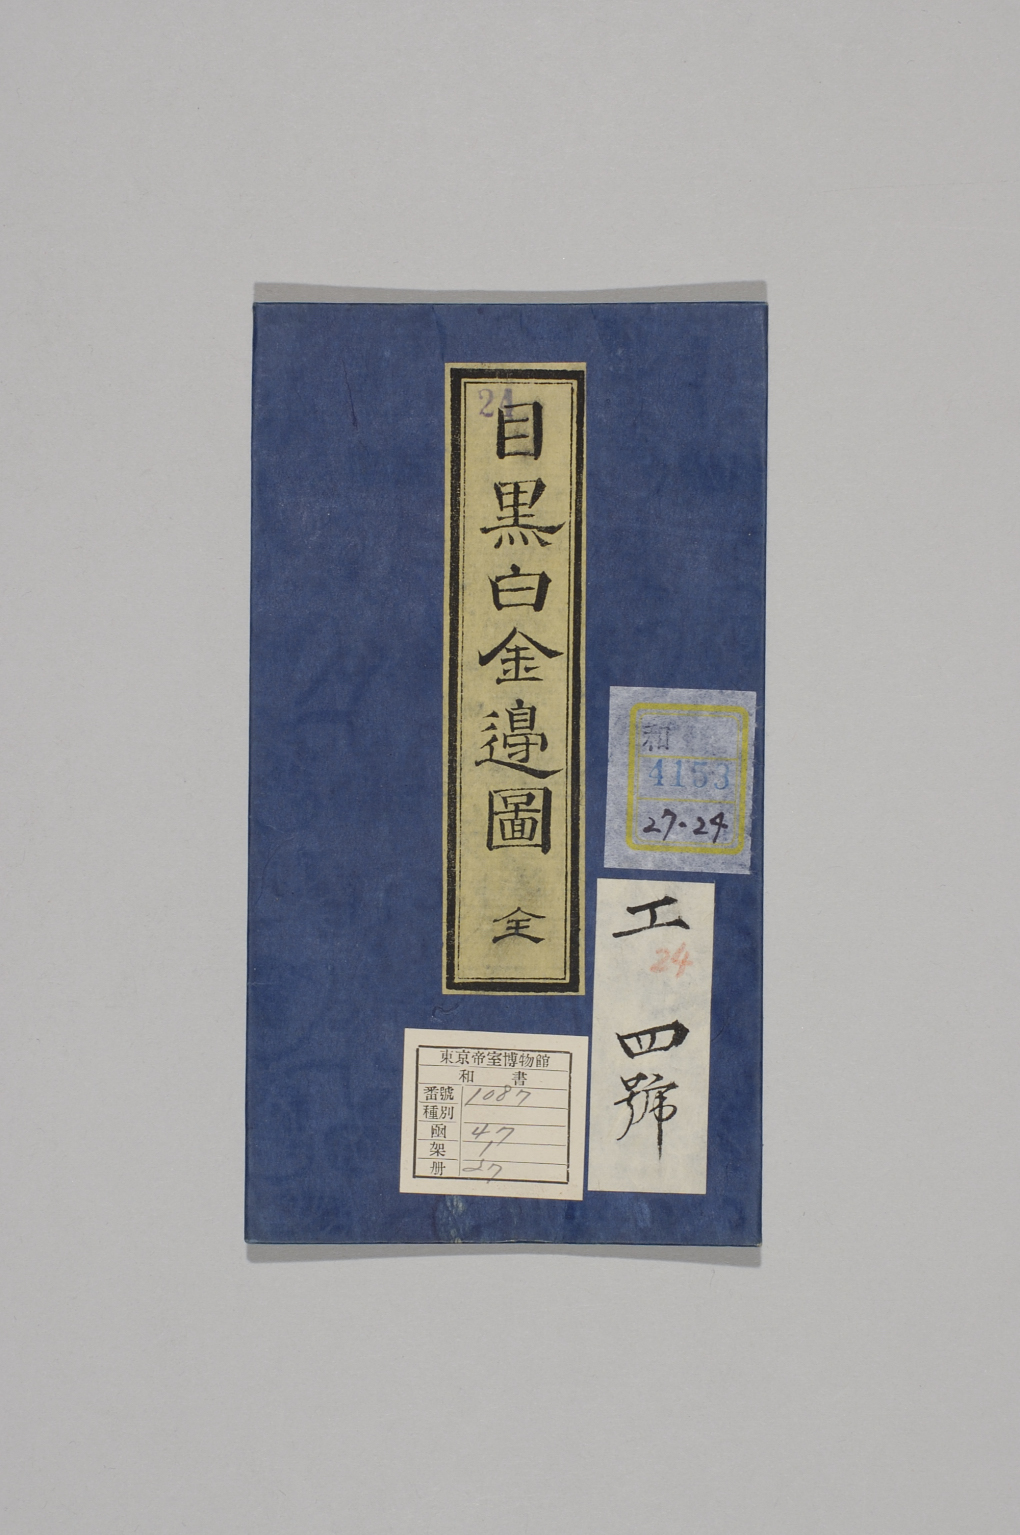 24
目黒白金邊圖 全
和
4153
27-24
工
24
四號
東京帝室博物館
和書
番號 1087
種別
函 47
架 1
册 27